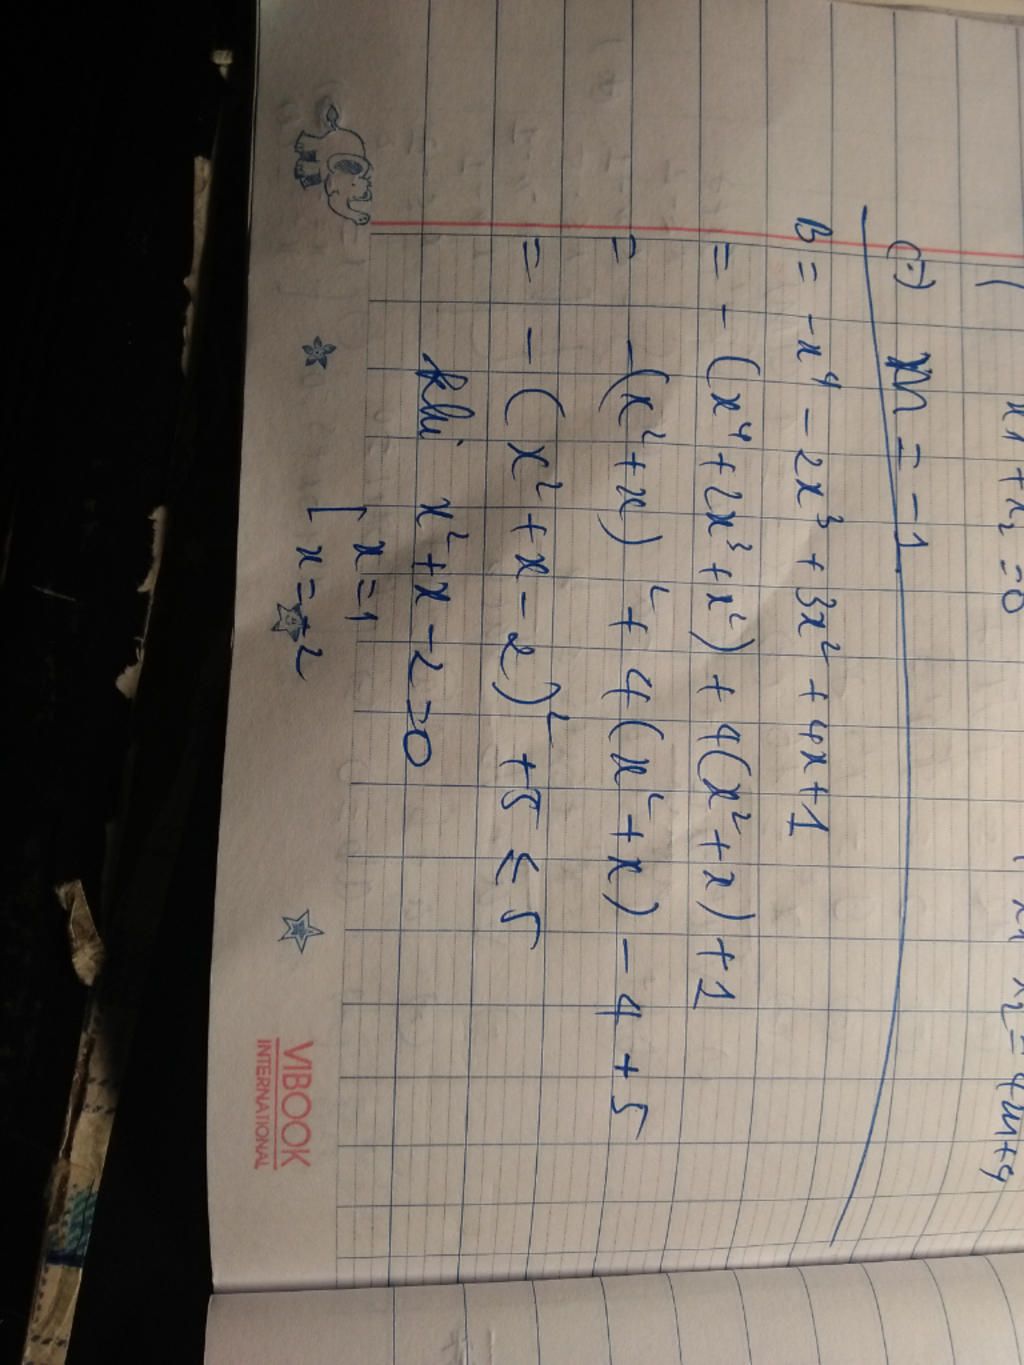 x1 + x2 = 0
x1 x2 = 4m+9
(=) m = -1
B = -x⁴ - 2x³ + 3x² + 4x + 1
= - (x⁴ + 2x³ + x²) + 4(x² + x) + 1
= -(x² + x)² + 4(x² + x) - 4 + 5
= - (x² + x - 2)² + 5 ≤ 5
khi x² + x - 2 = 0
[ x = 1
x = -2
VIBOOK
INTERNATIONAL